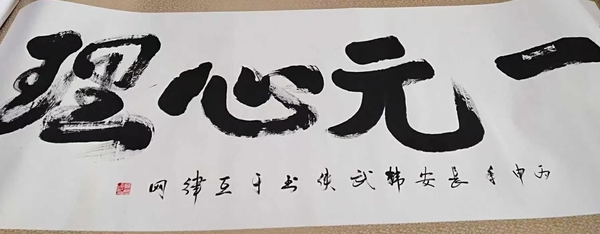 一元心理
丙申年長安韩武侠书于互律网